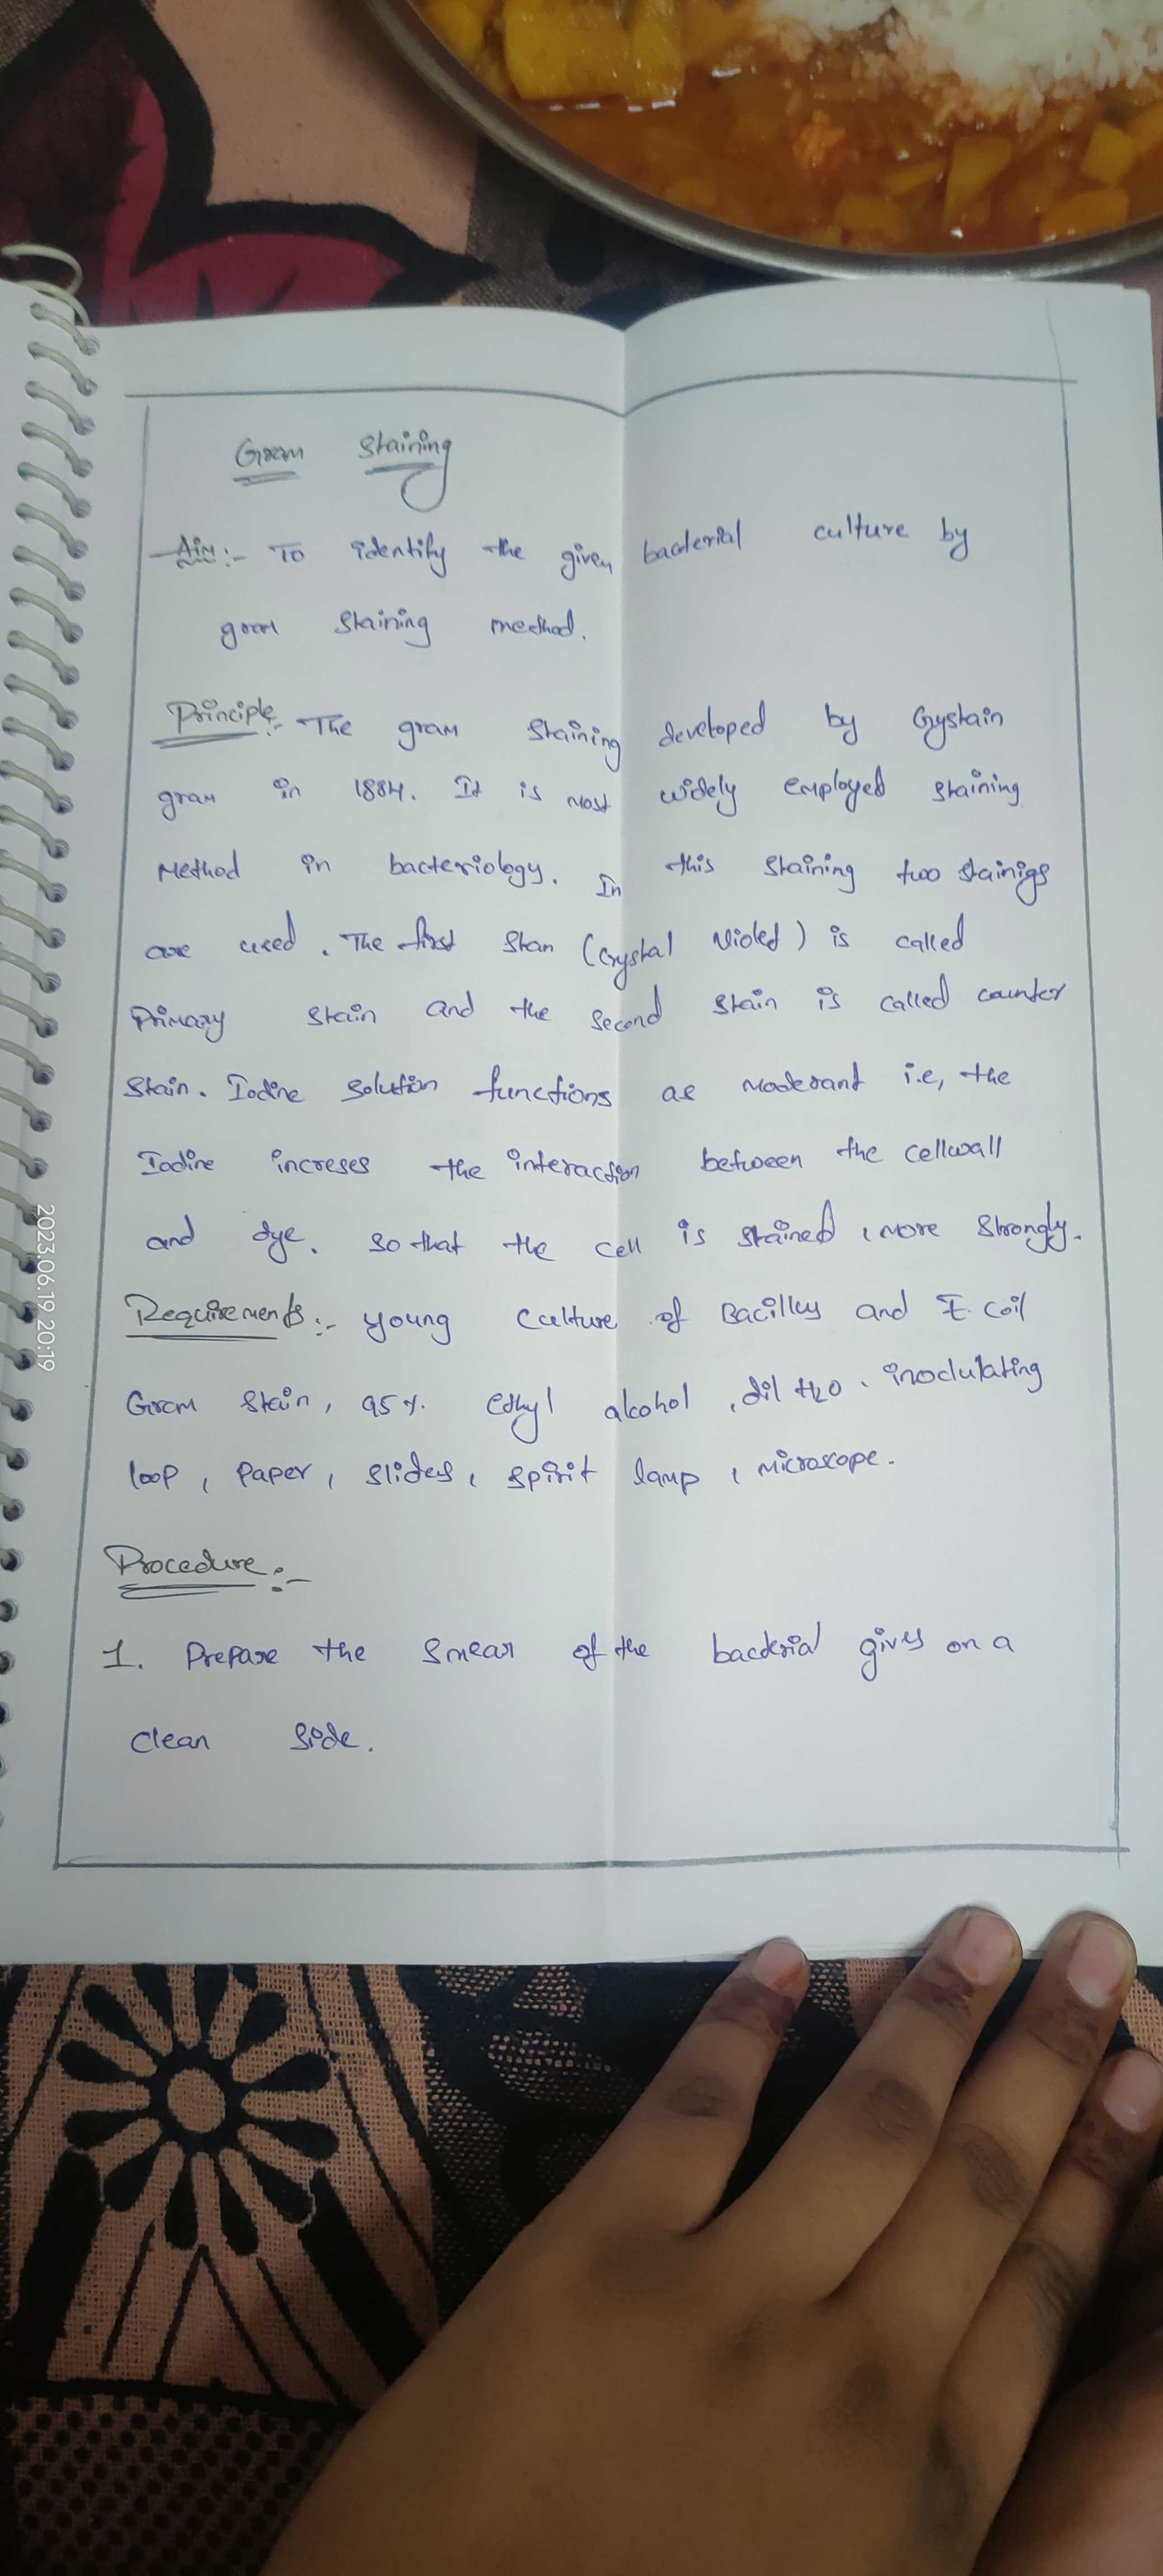 Gram Staining
Aim:- To identify the given bacterial culture by
gram staining method.
Principle:- The gram staining developed by Grystain
gram in 1884. It is most widely employed staining
Method in bacteriology. In this staining two stainigs
are used. The first stan (crystal violet) is called
Primary stain and the second stain is called counter
stain. Iodine solution functions as moderant i.e, the
Iodine increses the interaction between the cellwall
and dye. so that the cell is stained, more strongly.
Requirements:- young culture of Bacillus and E. coil
Gram stain, 95%. ethyl alcohol, dil H2O, inodulating
loop, paper, slides, spirit lamp, microscope.
Procedure:-
1. Prepare the smear of the bacterial gives on a
clean side.
2023.06.19 20:19